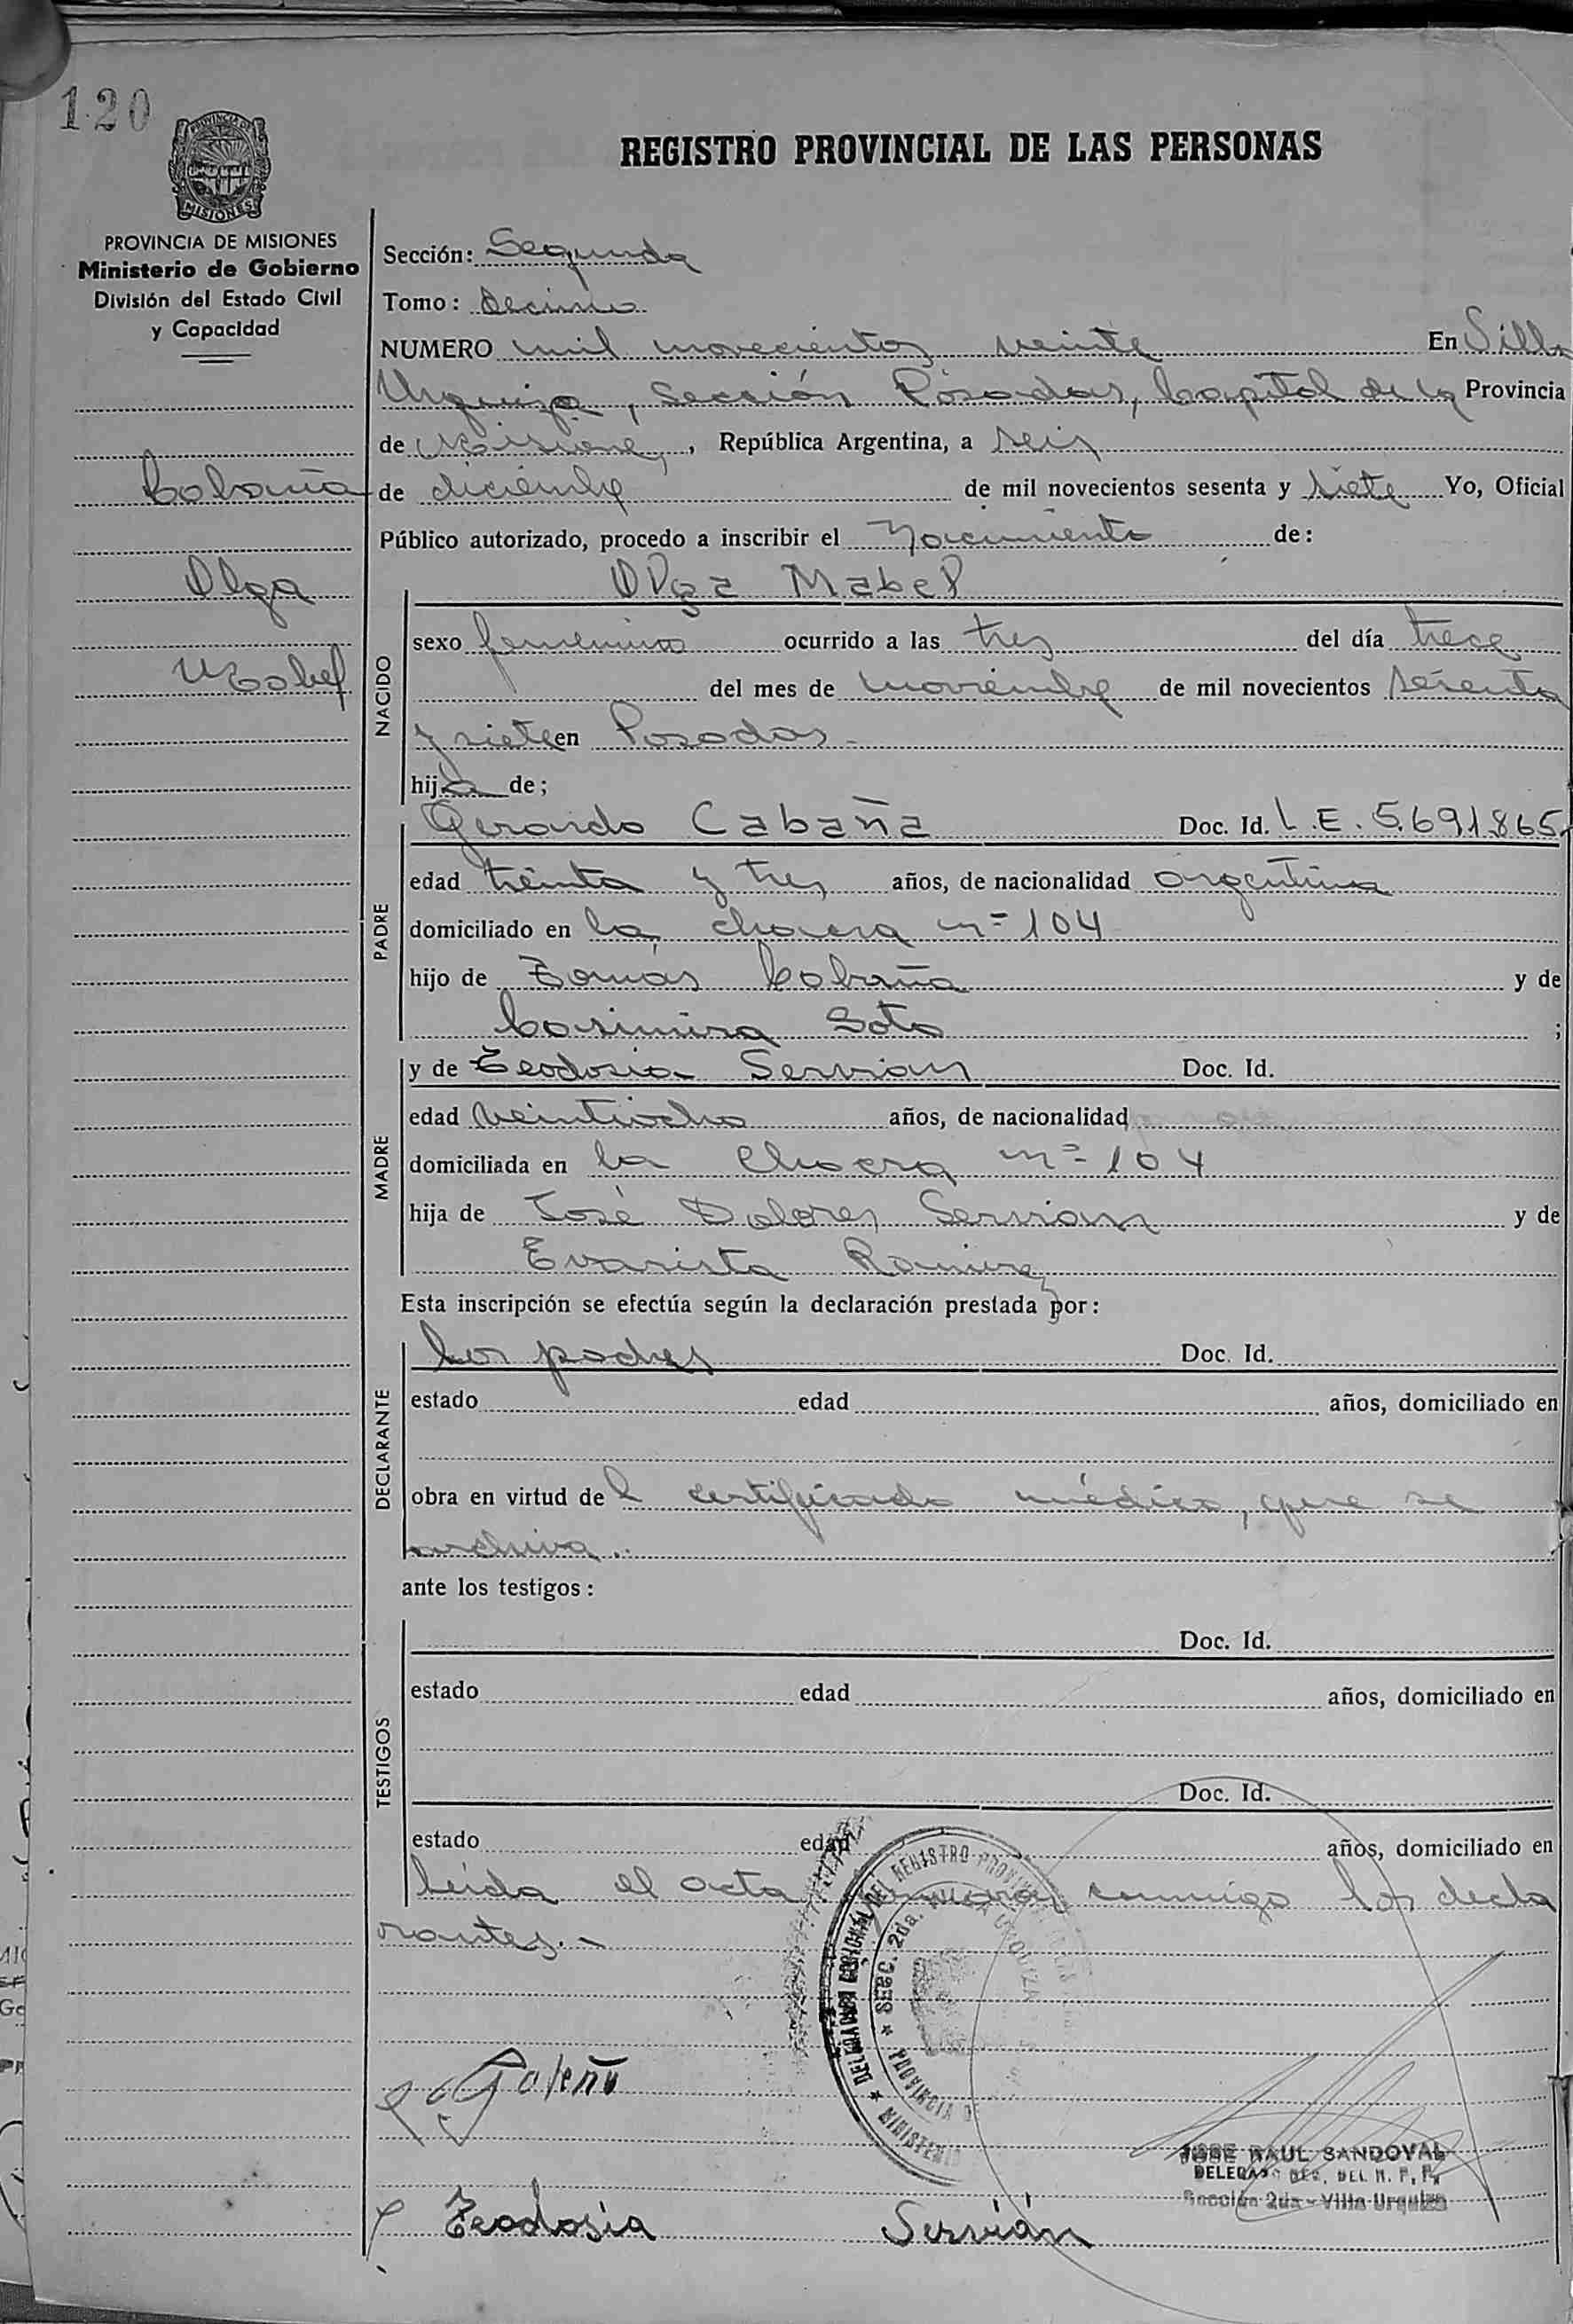 120
PROVINCIA DE
MISIONES
REGISTRO PROVINCIAL DE LAS PERSONAS
PROVINCIA DE MISIONES
Ministerio de Gobierno
División del Estado Civil
y Capacidad
Cabaña
Olga
Mabel
Sección: Segunda
Tomo: Decimo
NUMERO mil novecientos veinte En Villa
Urquiza, Sección Posadas, Capital de la Provincia
de Misiones, República Argentina, a seis
de diciembre de mil novecientos sesenta y siete Yo, Oficial
Público autorizado, procedo a inscribir el Nacimiento de:
Olga Mabel
NACIDO
sexo femenino ocurrido a las tres del día trece
del mes de noviembre de mil novecientos sesenta
y siete en Posadas.-
hija de;
PADRE
Gerardo Cabaña Doc. Id. L.E. 5.691.865
edad treinta y tres años, de nacionalidad argentina
domiciliado en la chacra nº 104
hijo de Tomás Cabaña y de
Casimira Soto ;
MADRE
y de Teodosia Servian Doc. Id.
edad veintiocho años, de nacionalidad
domiciliada en la chacra nº 104
hija de José Dolores Servian y de
Evarista Ramirez
Esta inscripción se efectúa según la declaración prestada por:
DECLARANTE
los padres Doc. Id.
estado edad años, domiciliado en
obra en virtud del certificado médico, que se
archiva.-
ante los testigos:
TESTIGOS
Doc. Id.
estado edad años, domiciliado en
Doc. Id.
estado edad años, domiciliado en
Leída el acta firman conmigo los decla
rantes.-
REGISTRO
SECC. 2da.
PROVINCIA
MINISTERIO
JOSE RAUL SANDOVAL
Sección 2da - Villa Urquiza
Teodosia Servián